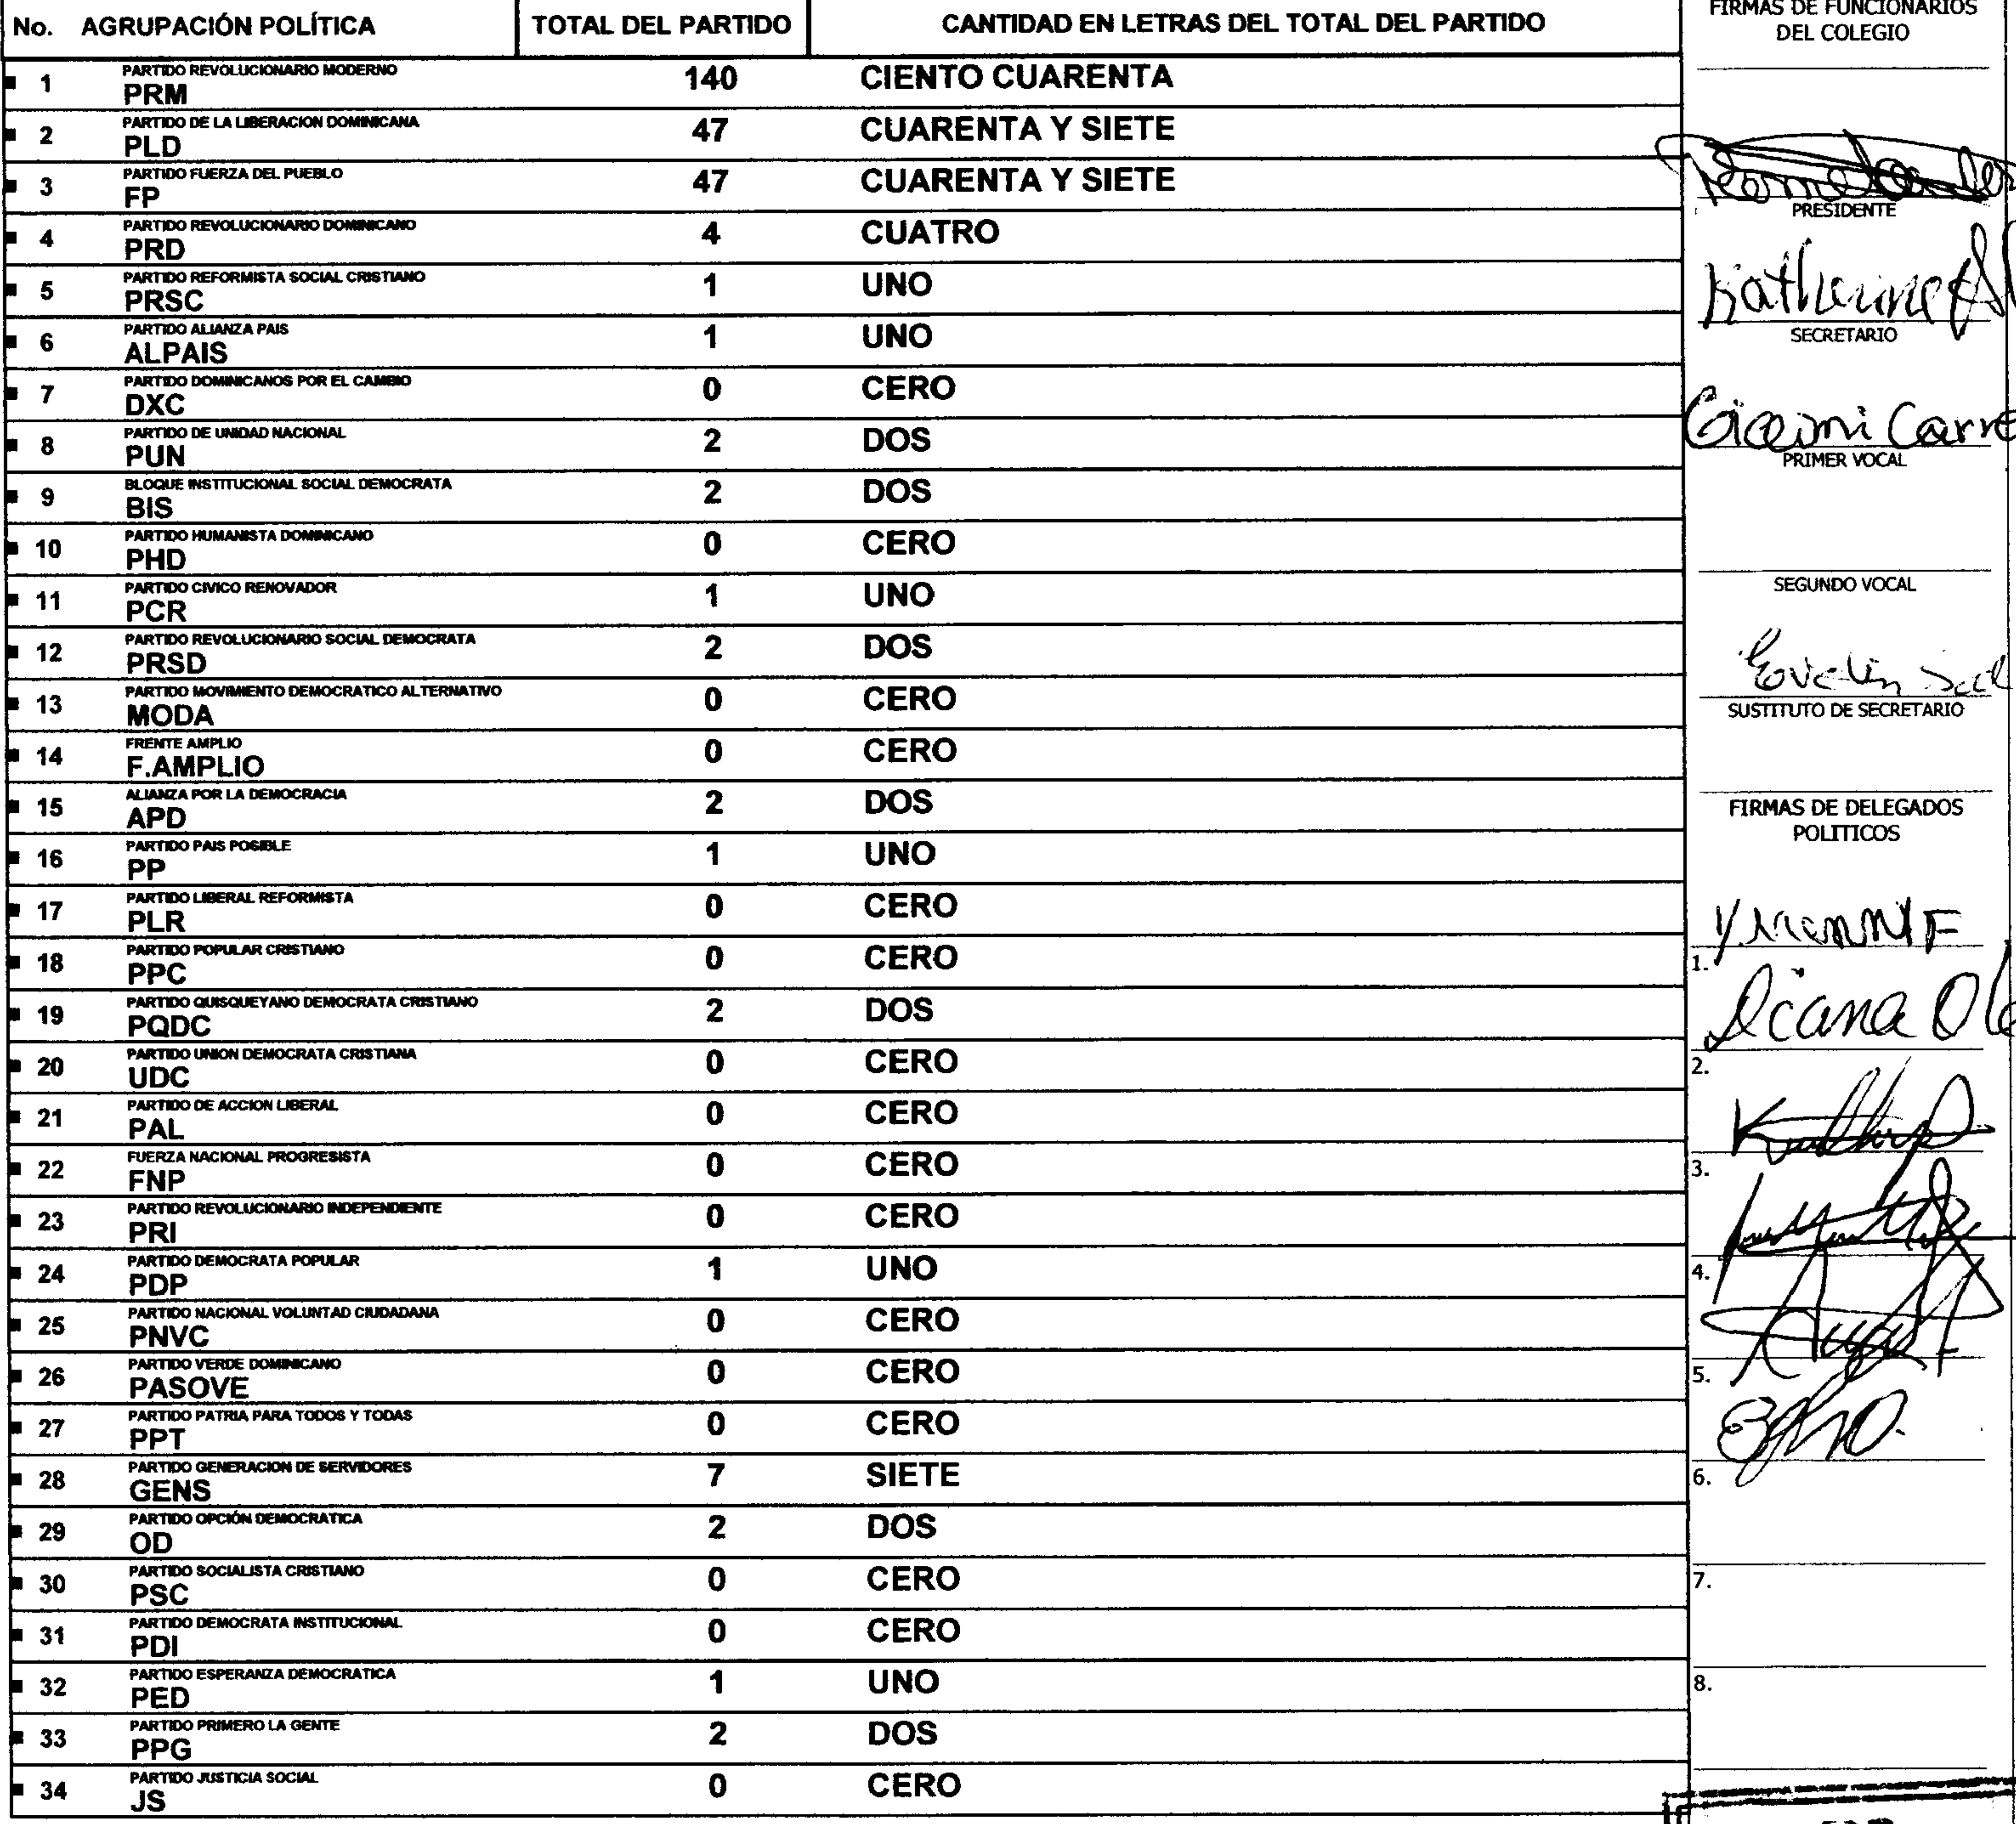 No. AGRUPACIÓN POLÍTICA TOTAL DEL PARTIDO CANTIDAD EN LETRAS DEL TOTAL DEL PARTIDO
1 PARTIDO REVOLUCIONARIO MODERNO
PRM 140 CIENTO CUARENTA
2 PARTIDO DE LA LIBERACION DOMINICANA
PLD 47 CUARENTA Y SIETE
3 PARTIDO FUERZA DEL PUEBLO
FP 47 CUARENTA Y SIETE
4 PARTIDO REVOLUCIONARIO DOMINICANO
PRD 4 CUATRO
5 PARTIDO REFORMISTA SOCIAL CRISTIANO
PRSC 1 UNO
6 PARTIDO ALIANZA PAIS
ALPAIS 1 UNO
7 PARTIDO DOMINICANOS POR EL CAMBIO
DXC 0 CERO
8 PARTIDO DE UNIDAD NACIONAL
PUN 2 DOS
9 BLOQUE INSTITUCIONAL SOCIAL DEMOCRATA
BIS 2 DOS
10 PARTIDO HUMANISTA DOMINICANO
PHD 0 CERO
11 PARTIDO CIVICO RENOVADOR
PCR 1 UNO
12 PARTIDO REVOLUCIONARIO SOCIAL DEMOCRATA
PRSD 2 DOS
13 PARTIDO MOVIMIENTO DEMOCRATICO ALTERNATIVO
MODA 0 CERO
14 FRENTE AMPLIO
F.AMPLIO 0 CERO
15 ALIANZA POR LA DEMOCRACIA
APD 2 DOS
16 PARTIDO PAIS POSIBLE
PP 1 UNO
17 PARTIDO LIBERAL REFORMISTA
PLR 0 CERO
18 PARTIDO POPULAR CRISTIANO
PPC 0 CERO
19 PARTIDO QUISQUEYANO DEMOCRATA CRISTIANO
PQDC 2 DOS
20 PARTIDO UNION DEMOCRATA CRISTIANA
UDC 0 CERO
21 PARTIDO DE ACCION LIBERAL
PAL 0 CERO
22 FUERZA NACIONAL PROGRESISTA
FNP 0 CERO
23 PARTIDO REVOLUCIONARIO INDEPENDIENTE
PRI 0 CERO
24 PARTIDO DEMOCRATA POPULAR
PDP 1 UNO
25 PARTIDO NACIONAL VOLUNTAD CIUDADANA
PNVC 0 CERO
26 PARTIDO VERDE DOMINICANO
PASOVE 0 CERO
27 PARTIDO PATRIA PARA TODOS Y TODAS
PPT 0 CERO
28 PARTIDO GENERACION DE SERVIDORES
GENS 7 SIETE
29 PARTIDO OPCIÓN DEMOCRATICA
OD 2 DOS
30 PARTIDO SOCIALISTA CRISTIANO
PSC 0 CERO
31 PARTIDO DEMOCRATA INSTITUCIONAL
PDI 0 CERO
32 PARTIDO ESPERANZA DEMOCRATICA
PED 1 UNO
33 PARTIDO PRIMERO LA GENTE
PPG 2 DOS
34 PARTIDO JUSTICIA SOCIAL
JS 0 CERO
FIRMAS DE FUNCIONARIOS
DEL COLEGIO
PRESIDENTE
Katherine
SECRETARIO
PRIMER VOCAL
SEGUNDO VOCAL
Evelin
SUSTITUTO DE SECRETARIO
FIRMAS DE DELEGADOS
POLITICOS
1.
2.
3.
4.
5.
6.
7.
8.